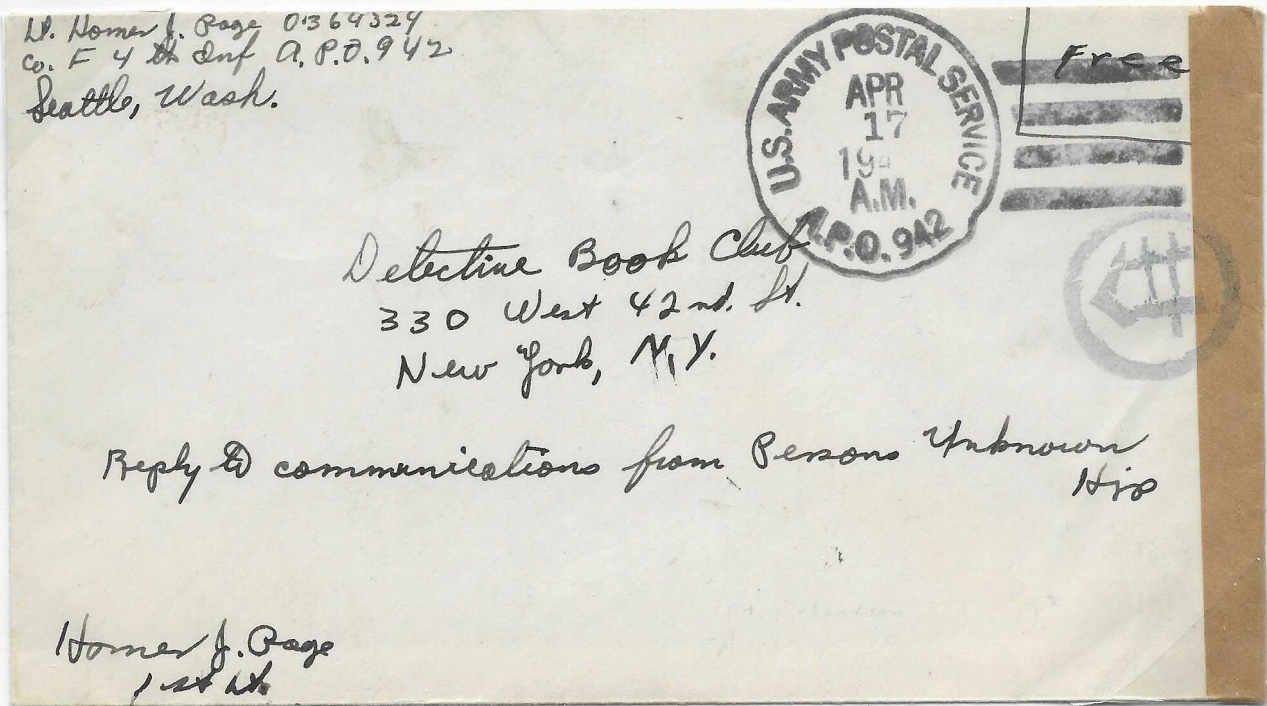 Lt. Homer J. Page 0364324
Co. F 4th Inf A.P.O. 942
Seattle, Wash.
U.S. ARMY POSTAL SERVICE
APR
17
19
A.M.
A.P.O. 942
Free
Detective Book Club
330 West 42nd. St.
New York, N.Y.
Reply to communications from Persons Unknown
HJP
Homer J. Page
1st Lt.